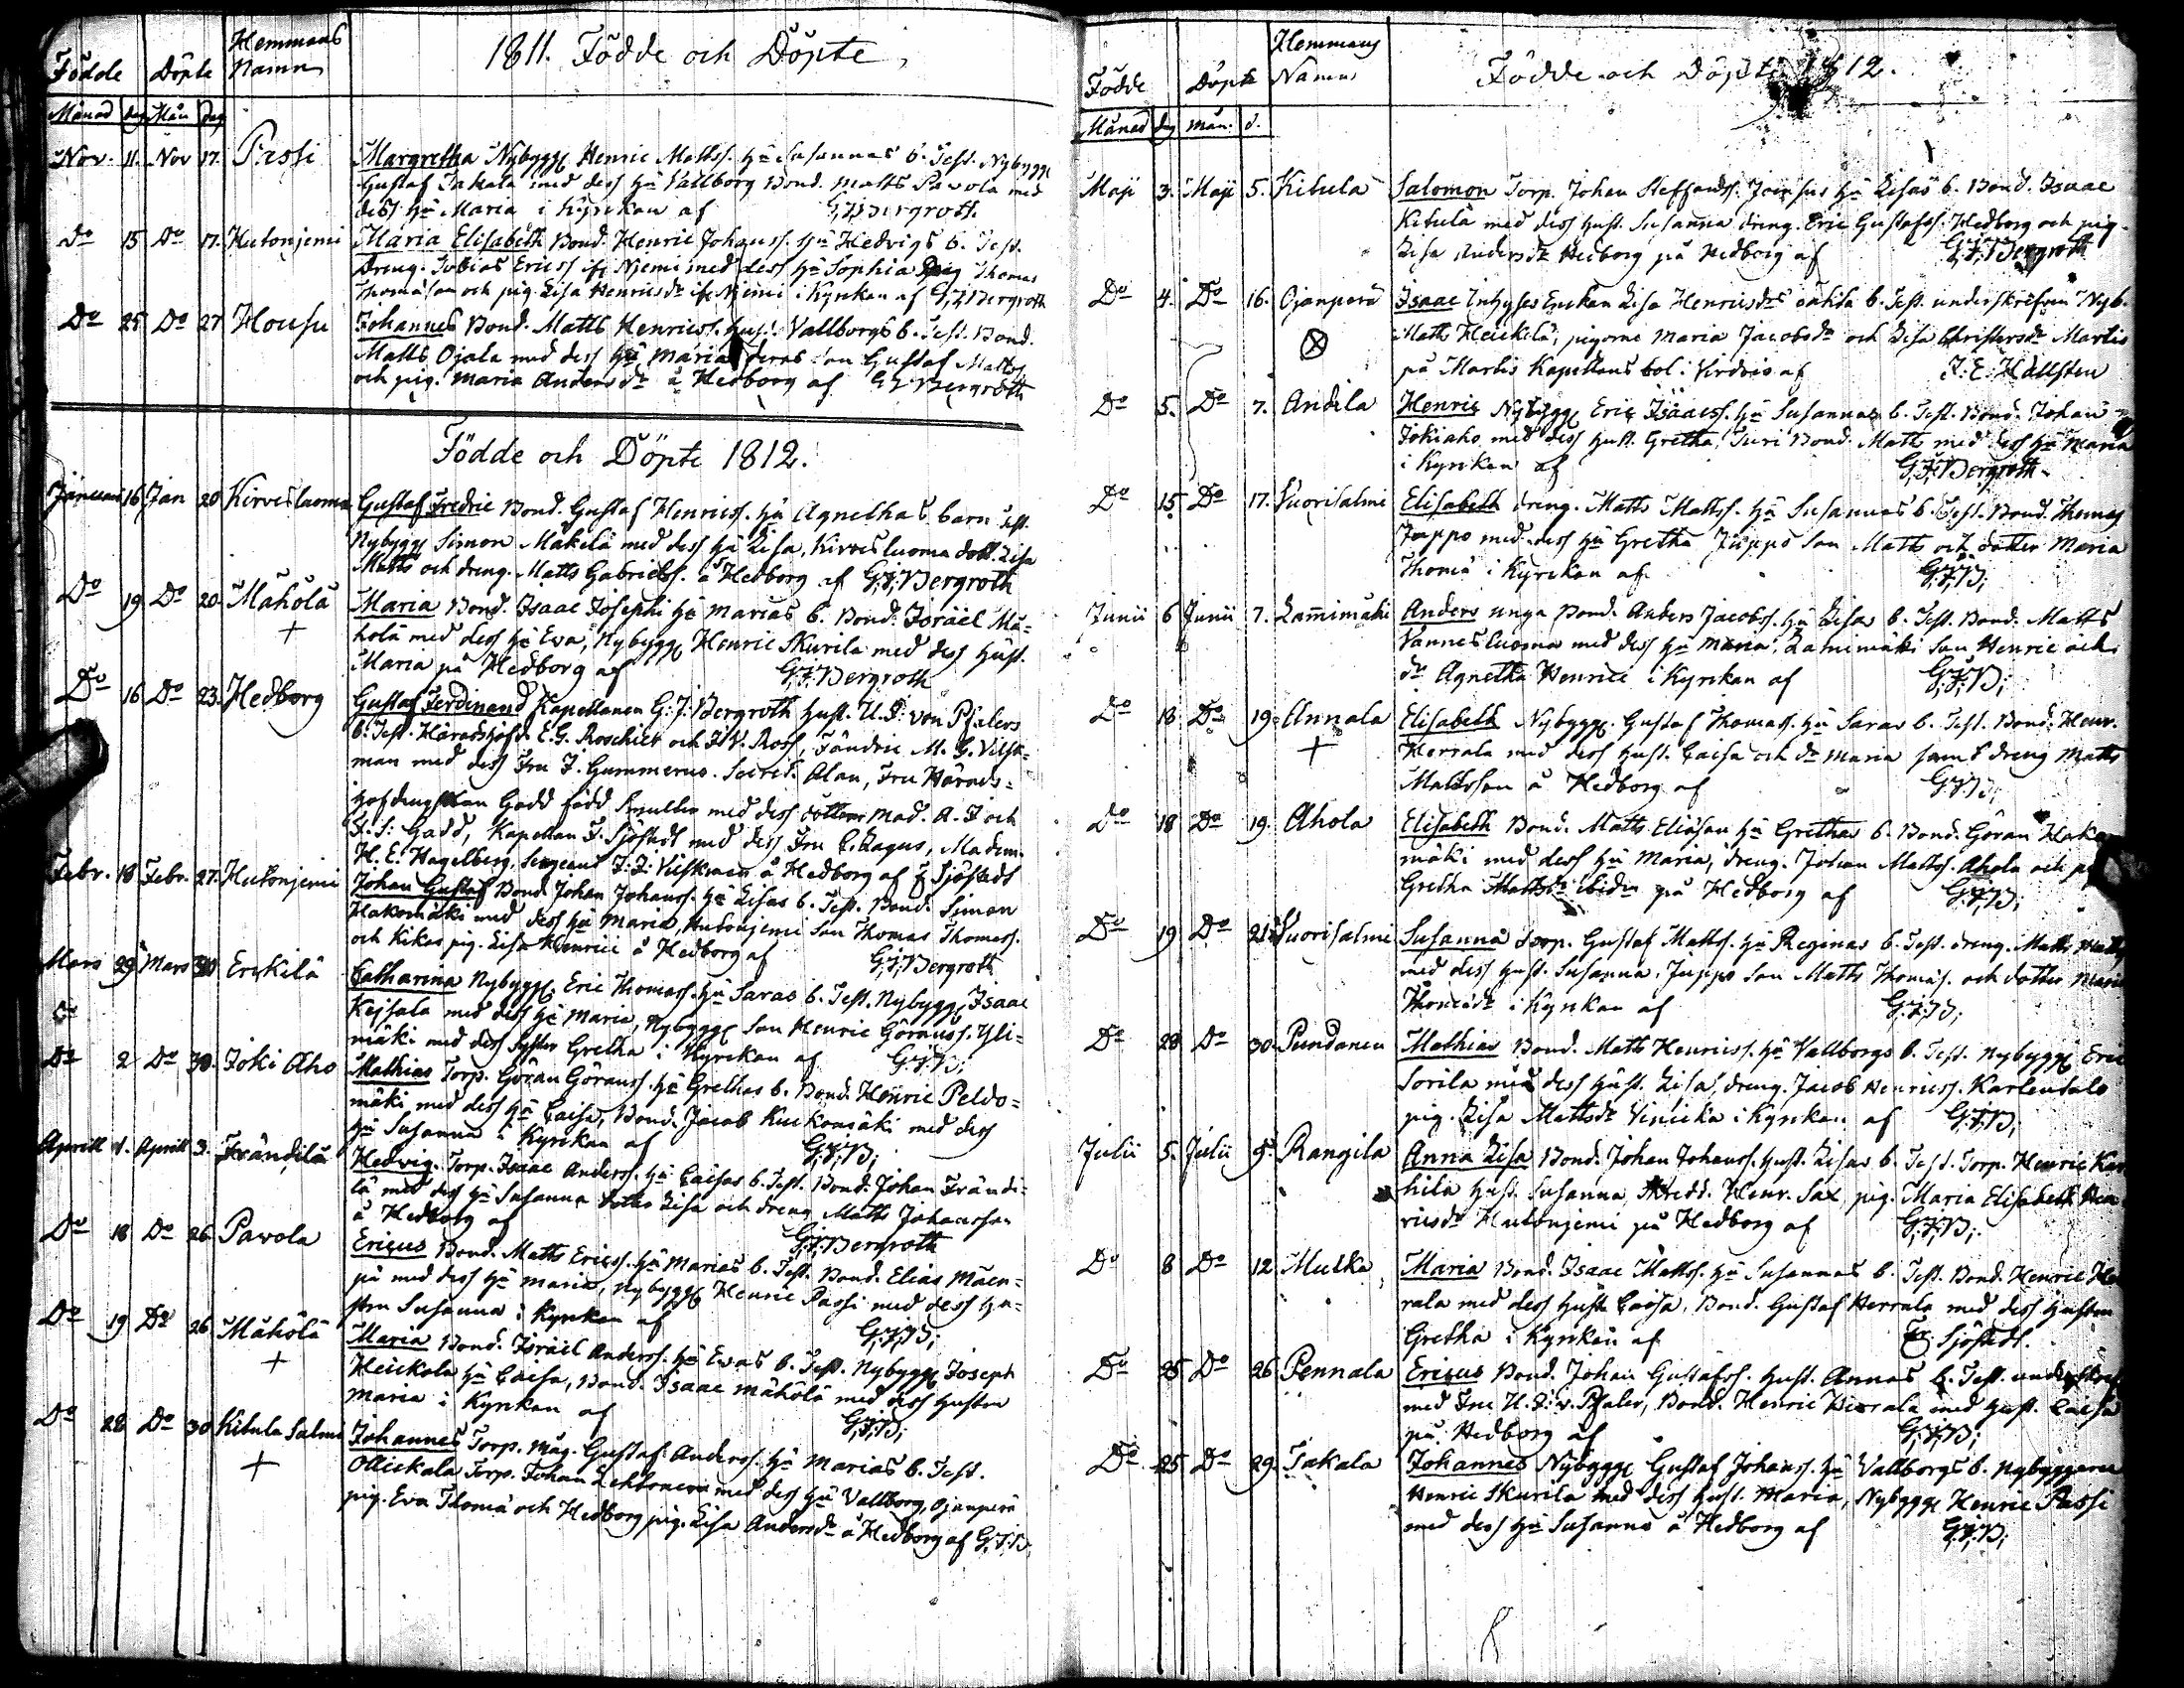 Hemmans
Födde Döpte Namn
1811. Födde och Döpte
Månad dag Mån Dag
Nov. 11. Nov 17. Passi Margretha Nybygg Henric Matts. Hu Susannas b. Test. Nybygg
Gustaf Takala med dess Hu Vallborg Bond. Matts Pavola med
dess Hu Maria i Kyrckan af G:F:Bergroth.
Do 15 Do 17. Hutonjemi Maria Elisabeth Bond. Henric Johanss. Hu Hedvigs b. Test.
Dreng. Tobias Ericss Niemi med dess Hu Sophia Thomas
Thomasson och pig. Lisa Henricsdr Niemi i Kyrckan af G:F:Bergroth
Do 25 Do 27 Housu Johannes Bond. Matts Henricss. Hust. Vallborgs b. Test. Bond.
Matts Ojala med dess Hu Maria deras son Gustaf Matts
och pig. Maria Andersdr å Hedborg af G:F:Bergroth
Födde och Döpte 1812.
Januari 16 Jan 20 Kirvesluoma Gustaf Fredric Bond. Gustaf Henricss. Hu Agnethas barn Test.
Nybygg Simon Mäkelä med dess Hu Lisa, Kirvesluoma dott. Lisa
Matts och dreng. Matts Gabrielss. å Hedborg af G:F:Bergroth
Do 19 Do 20. Mähölä Maria Bond. Isaac Josephs Hu Marias b. Bond. Israel Mä=
+ hölä med dess Hu Eva, Nybygg Henric Skurila med dess Hust.
Maria på Hedborg af G:F:Bergroth
Do 16 Do 23. Hedborg Gustaf Ferdinand Kapellanen G:F:Bergroth Hust. U.F: von Pfalers
b. Test. Häradshöfd. E.G. Roschier och J.V. Ross, Fändric M.G. Vilsk=
man med dess Fru J. Gummerus. Secret. Alan, Fru Härads=
höfdingskan Gadd född Smullen med dess döttrar Mad. A.F och
F.S: Gadd, Kapellan F. Sjöstedt med dess Fru C. Lagus, Madem.
H.E. Hagelberg, Sergeant J.F. Vilskman å Hedborg af F Sjöstedt
Febr. 18 Febr. 27. Hutonjemi Johan Gustaf Bond. Johan Johanss. Hu Lisas b. Test. Bond. Simon
Hakomäki med dess Hu Maria, Hutonjemi Son Thomas Thomass.
och Kikas pig. Lisa Henrici å Hedborg af G:F:Bergroth
Mars 29 Mars 30 Erckilä Catharina Nybygg. Eric Thomass. Hu Saras b. Test. Nybygg Isaac
Kejsala med dess Hu Maria, Nybygg Son Henric Göranss. Yli=
mäki med dess Syster Gretha i Kyrckan af G:F:B:
Do 2 Do 30. Joki Aho Mathias Torp. Göran Göranss. Hu Grethas b. Bond. Henric Peldo=
mäki med dess Hu Caisa, Bond. Jacob Kuckomäki med dess
Hu Susanna i Kyrckan af G:F:B:
Aprill 1. Aprill 3. Frändilä Hedvig. Torp. Isaac Anderss. Hu Caisas b. Test. Bond. Johan Frändi=
lä med dess Hu Susanna dotter Lisa och dreng Matts Johansson
å Hedborg af G:F:Bergroth
Do 18 Do 26 Pavola Ericus Bond. Matts Ericss. Hu Marias b. Test. Bond. Elias Mäen=
pä med dess Hu Maria, Nybygg Henric Passi med dess Hu=
stru Susanna i Kyrckan af G:F:B:
Do 19 Do 26 Mähölä Maria Bond. Israel Anderss. Hu Evas b. Test. Nybygg Joseph
+ Heickola Hu Caisa, Bond. Isaac Mähölä med dess Hustru
Maria i Kyrckan af G:F:B:
Do 28 Do 30 Kitula Salmi Johannes Torp. Måg. Gustaf Anderss. Hu Marias b. Test.
+ Ollickala Torp. Johan Lehtonen med dess Hu Vallborg, Ojanperä
pig. Eva Thomä och Hedborg pig. Lisa Andersdr å Hedborg af G:F:B.
Hemmans
Födde Döpte Namn
Födde och Döpte 1812.
Månad dag mån. d.
Maji 3. Maji 5. Kitula Salomon Torp. Johan Steffanss. Hu Lisas b. Bond. Isaac
Kitula med dess Hust. Susanna dreng. Eric Gustafss. Hedborg och pig.
Lisa Andersdr Hedborg på Hedborg af G:F:Bergroth
Do 4. Do 16. Ojanperä Isaac Inhyses Enckan Lisa Henricsdrs oäkta b. Test. underskrefven Nyb.
Matts Heickilä, pigorne Maria Jacobsdr och Lisa Christersdr Martis
på Martis Kapellans bol i Virdois af J:E:Hällsten
Do 5. Do 7. Andila Henric Nybygg Eric Isaacss. Hu Susannas b. Test. Bond. Johan
Jokiaho med dess Hust. Gretha, Turi Bond. Matts med dess Hu Maria
i Kyrckan af G:F:Bergroth
Do 15 Do 17. Vuorisalmi Elisabeth dreng. Matts Matts. Hu Susannas b. Test. Bond. Thomas
Juppo med dess Hu Gretha Juppo Son Matts och dotter Maria
Thomä i Kyrckan af G:F:B;
Junii 6 Junii 7. Lamimäki Anders unga Bond. Anders Jacobss. Hu Lisas b. Test. Bond. Matts
Vannesluoma med dess Hu Maria, Lamimäki Son Henric och
dr Agnetha Henrici i Kyrckan af G:F:B;
Do 18 Do 19. Annala Elisabeth Nybygg. Gustaf Thomass. Hu Saras b. Test. Bond. Henr.
+ Herrala med dess Hust. Caisa och dr Maria samt dreng Matts
Mattsson å Hedborg af G:F:B;
Do 18 Do 19. Ahola Elisabeth Bond. Matts Eliäson Hu Grethas b. Bond. Göran Hako
mäki med dess Hu Maria, dreng. Johan Matts. Ahola och
Gretha Mattsdr ibidm på Hedborg af G:F:B;
Do 19 Do 21. Vuorisalmi Susanna Torp. Gustaf Matts. Hu Reginas b. Test. dreng. Matts Matts
med dess Hust. Susanna, Juppo Son Matts Thomas. och dotter Maria
Thomædr i Kyrckan af G:F:B;
Do 28 Do 30. Pundanen Mathias Bond. Matts Henricss. Hu Vallborgs b. Test. Nybygg Eric
Sorila med dess Hust. Lisa, dreng. Jacob Henricss. Karlendalo
pig. Lisa Mattsdr Vinicka i Kyrckan af G:F:B;
Julii 5. Julii 9. Rangila Anna Lisa Bond. Johan Johanss. Hust. Lisas b. Test. Torp. Henric Kar
hila Hust. Susanna, Henr. Sax, pig. Maria Elisabeth Hen
ricsdr Hutonjemi på Hedborg af G:F:B;
Do 8 Do 12 Mulka Maria Bond. Isaac Matts. Hu Susannas b. Test. Bond. Henric Her
rala med dess Hust. Caisa, Bond. Gustaf Herrala med dess Hustru
Gretha i Kyrckan af Er. Sjöstedt.
Do 25 Do 26 Pennala Ericus Bond. Johan Gustafss. Hust. Annas b. Test.
med Fru U.F: v. Pfaler, Bond. Henric Herrala med Hust. Caisa
på Hedborg af G:F:B;
Do 25 Do 29. Takala Johannes Nybygg Gustaf Johanss. Hu Vallborgs b. Nybyggaren
Henric Skurila med dess Hust. Maria, Nybygg Henric Passi
med dess Hu Susanna å Hedborg af G:F:B;